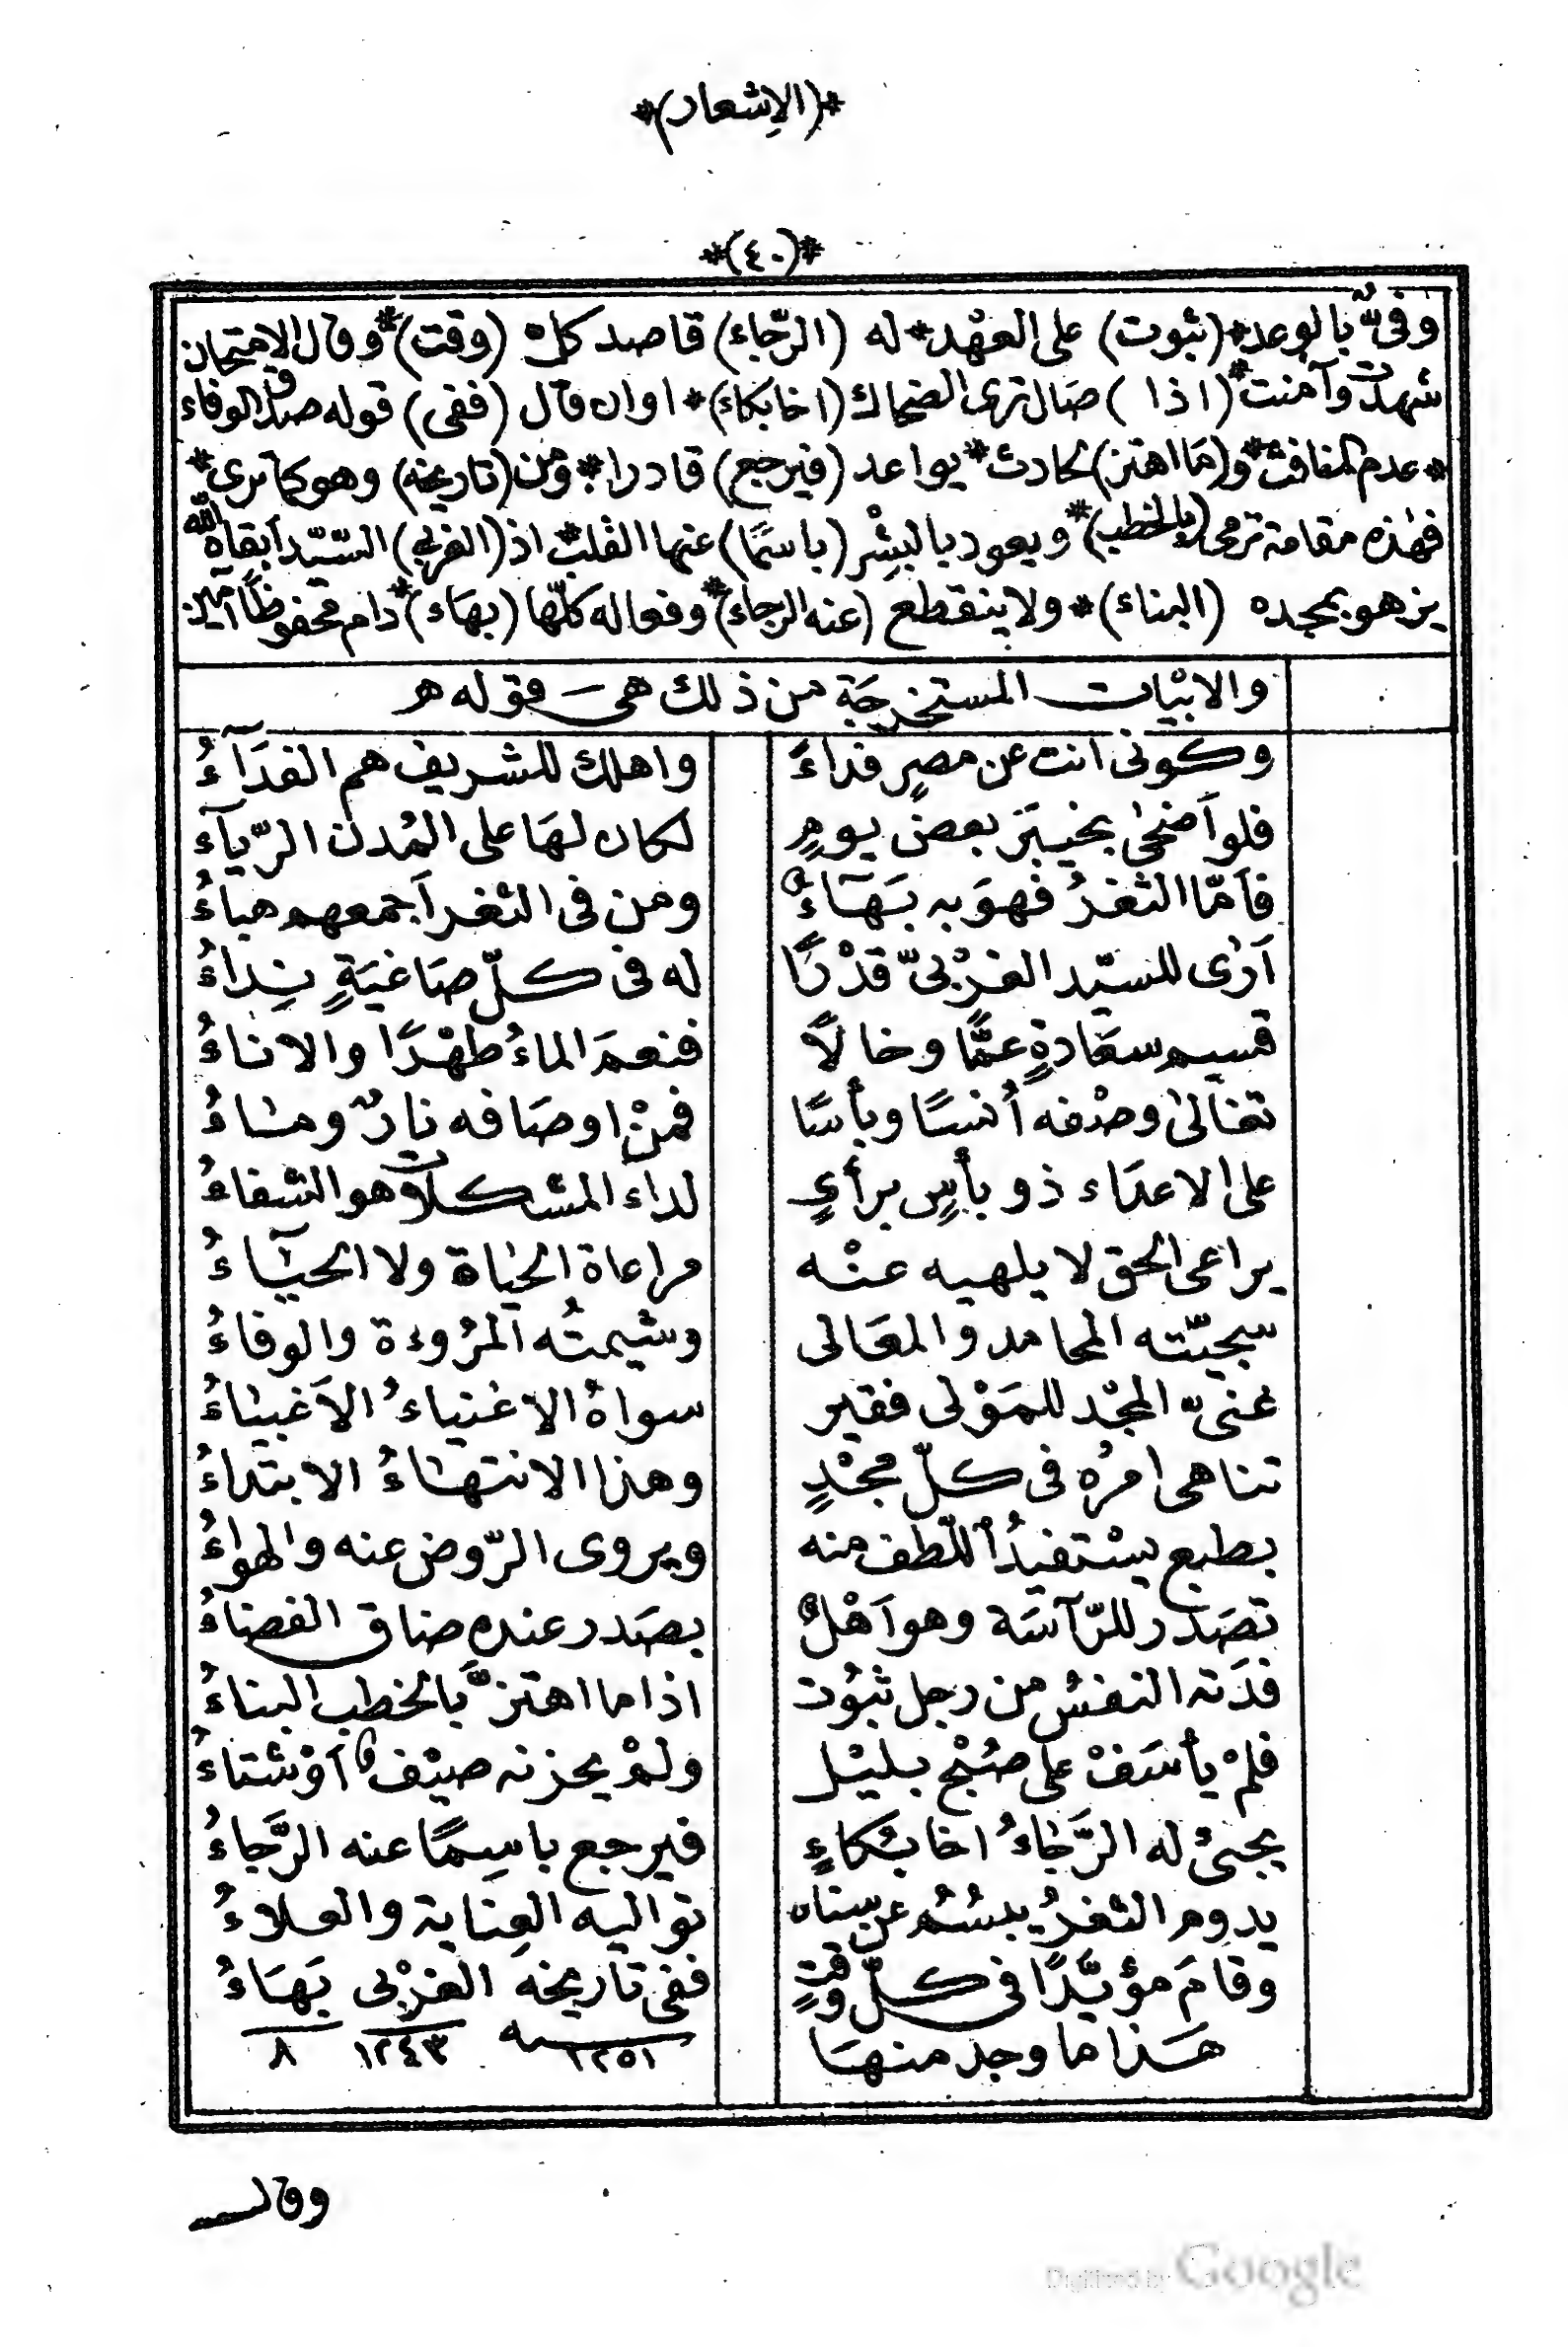 *(الاِشعار)*
*(٤٠)*
وفىّ بالوعد*(ثبوت) على العهْد*له (الرّجاء) قاصد كلّ (وقت)*وقال الامتحان
شهدت وآمنت*(اذا) صال ترى الضحاك (اخا بكاء)*اوان قال (ففى) قوله صدق الوفاء
*عدم المنافث*و(ما اهتز) لحادث*يواعد (فيرجع) قادرا*ومن (تاريخه) وهو كما ترى*
فهٰذه مقامة ترمى (بالخطب)*ويعود بالبشْر (باسمًا) عنها القلب*اذ (الغربى) السّيّد أبقاه الله
يزهو بمجده (البناء)*ولا ينقطع (عنه الرجاء)*وفعاله كلّها (بهاء)*دام محفوظًا آمين
والابيات المستخرجة من ذلك هى قوله
وكونى انت عن مصرٍ فداءً واهلك للشريف هم الفدَآءُ
فلو اَضحىٰ بخيبَر بعض يومٍ لكان لهَا على المُدن الرّيآء
فاَمّا الثغرُ فهوَ به بَهَآءٌ ومن فى الثغر اَجمعهم هباءُ
اَرٰى للسيّد الغرْبىّ قدْرًا له فى كلّ صَاغيَةٍ نِداءُ
قسيم سعَادةٍ عمًّا وخالاً فنعمَ الماءُ طهْرًا والاناءُ
تغالىٰ وصْفه اُنسًا وبأسًا فمنْ اوصَافه نارٌ ومَاءُ
على الاعدَاء ذو بأسٍ برأىٍ لداء المشكلات هو الشفاءُ
يراعى الحق لا يلهيه عنْه مراعاة الحيَاة ولا الحيَآءُ
سجيّته المحامد والمعَالى وشيمتُه المرُوءة والوفاءُ
غنىّ المجْد للمَوْلى فقير سواهُ الاغنياءُ الاَغبيَاءُ
تناهى امرُه فى كلّ مجْدٍ وهذا الانتهَاءُ الابتداءُ
بطبع يسْتفيدُ اللّطف منه ويروى الرّوض عنه والهواءُ
تصَدّر للرّآسَة وهو اَهْلٌ بصَدر عنده ضاق الفضاءُ
فدَته النفسُ من رجل ثبُوت اذا ما اهتزّ بالخطب البناءُ
فلمْ يأسَفْ على صُبْح بليْل ولمْ يحزنه صيْفٌ اَوْ شتاءُ
يجىئ له الرَّجَاءُ اخا بُكاءٍ فيرجع باسِمًا عنه الرَّجاءُ
يدوم الثغرُ يبسُمُ عن سناه تواليه العِناية والعلاءُ
وقامَ مؤيَّدًا فى كلّ وقتٍ ففى تاريخه الغرْبى بَهَاءُ
هَذا ما وجد منهَا ١٢٥١ سنه ١٢٤٣ ٨
وقال
Digitized by Google